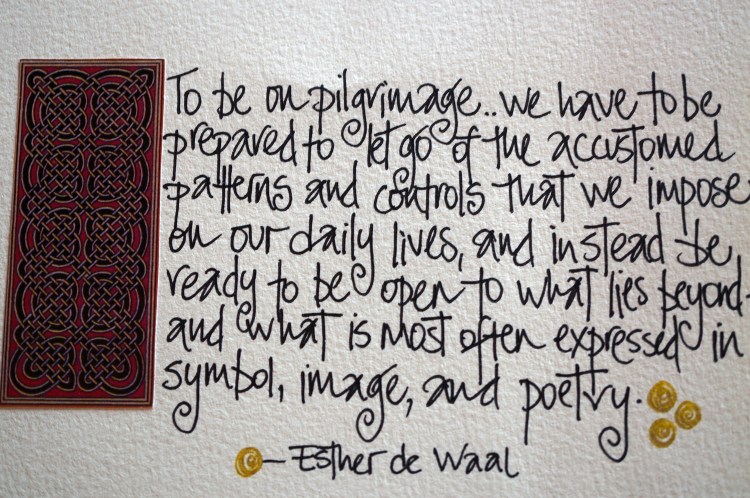 To be on pilgrimage.. we have to be
prepared to let go of the accustomed
patterns and controls that we impose
on our daily lives, and instead be
ready to be open to what lies beyond.
and what is most often expressed in
symbol, image, and poetry.
- Esther de Waal